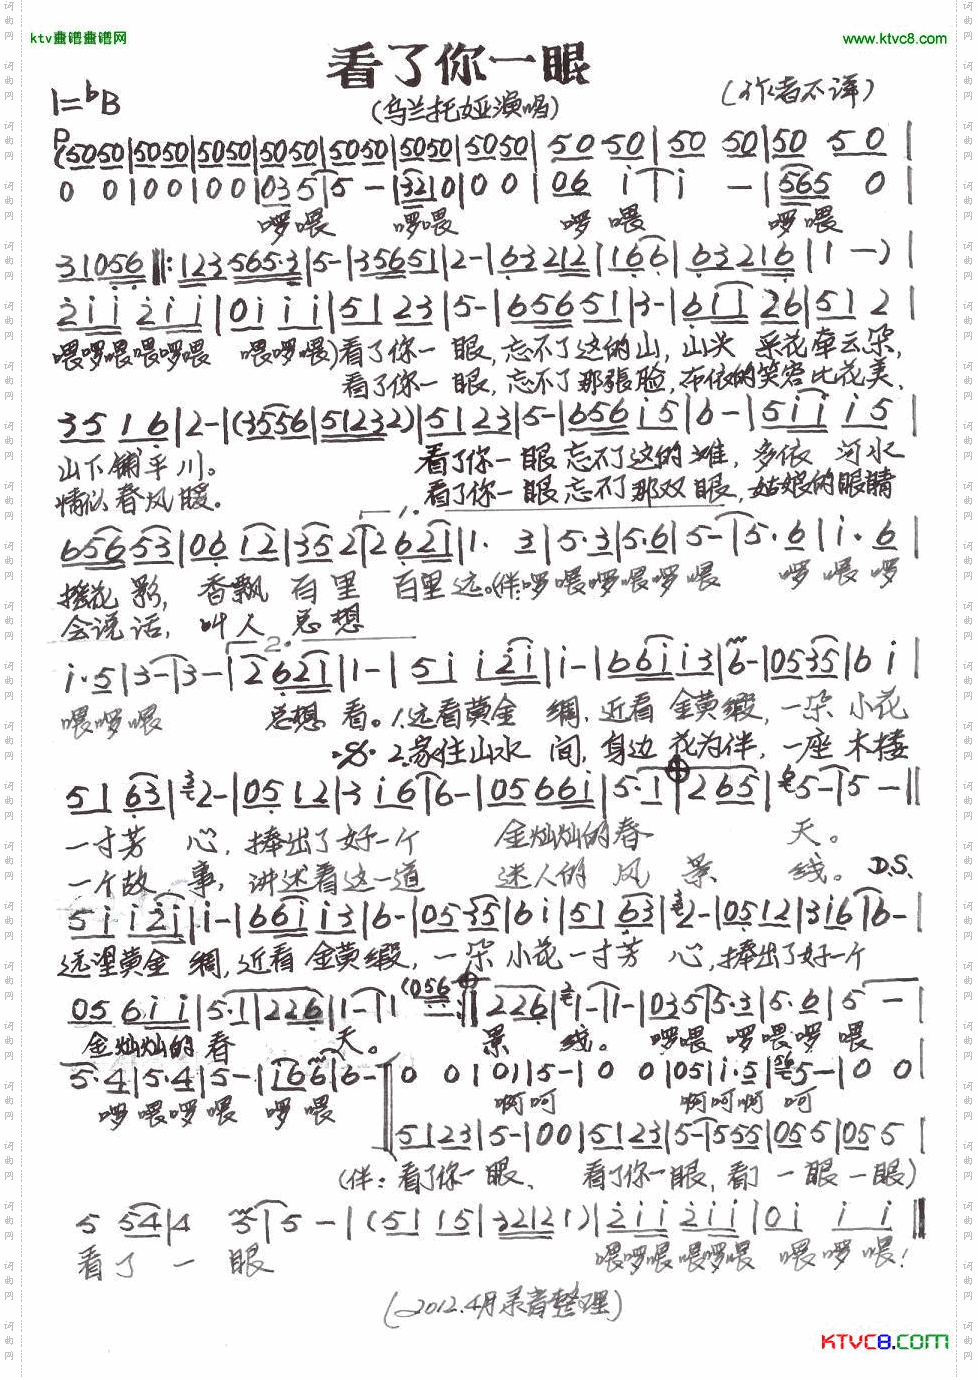 ktv畫谱畫谱网
www.ktvc8.com
看了你一眼
1=♭B
(乌兰托娅演唱)
(作者不详)
P
(5050|5050|5050|5050|5050|5050|5050|5050|5050|5050|
0 0|00|00|035|5-|32|0|00|06 i|i -|565 0|
啰喂 啰喂 啰喂 啰喂
31056‖:123565·3|5-|35651|2-|63212|166|63216|1 —)|
2ii2ii|0iii|5123|5-|65651|3-|6i126|512|
喂啰喂喂啰喂 喂啰喂)看了你一眼,忘不了这的山,山头 采花牵云朵,
看了你一眼,忘不了那張脸,布依的笑容比花美、
3516|2-|(35556|51232)|5123|5-|656i5|6-|5iii5|
山下铺平川。 看了你一眼忘不了这的滩,多依 河水
情似春风暖。 看了你一眼忘不了那双眼,姑娘的眼睛
1.
65653|0612|352|2621|1. 3|5·3|5·6|5-|5·6|i·6|
摇花影,香飘 百里 百里远。(伴:啰喂啰喂啰喂 啰喂啰
会说话,叫人 总想
2.
i·5|3-|3-|2621|1-|5ii2i|i-|66ii3|6-|0535|6i|
喂啰喂 总想看。1.远看黄金 绸,近看 金黄缎,一朵 小花
2.家住山水 间,身边 花为伴,一座 木楼
5163|2-|0512|3i6|6-|0566i|5·1|265|5-|5-‖
一寸芳 心,捧出了好一个 金灿灿的春 天。
一个故 事,讲述着这一道 迷人的风 景 线。 D.S.
5ii2i|i-|66ii3|6-|0535|6i|5163|2-|0512|3i6|6-|
黄金 绸,近看 金黄缎,一朵 小花一寸芳 心,捧出了好一个
056ii|5·1|226|1-|1 (056:‖226|1-|1-|035|5·3|5·6|5 —|
金灿灿的春 天。 景 线。 啰喂 啰喂啰喂
5·4|5·4|5-|i66|6-|0 0|01|5-|0 0|05|i·5|5-|0 0|
啰喂啰喂 啰喂 啊呵 啊呵啊呵
5123|5-|00|5123|5-|555|055|055|
(伴:看了你一眼、 看了你一眼,看了 一眼一眼)
5 54|4 5|5 -|(5115|32121)|2ii2ii|0i i i‖
看了 一 眼 喂啰喂喂啰喂 喂啰喂!
(2012.4月录音整理)
KTVC8.COM
词曲网